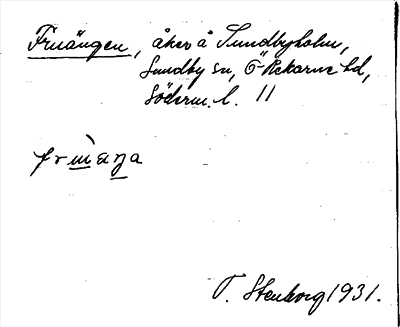 Fruängen, åker å Sundbyholm,
Sundby sn, Ö Rekarne hd,
Söderm. l. 11
T. Stenborg 1931.